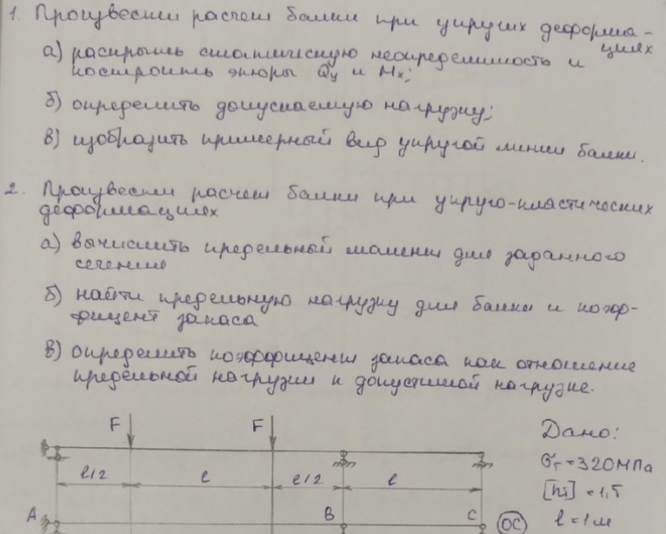 1. Произвести расчет балки при упругих деформа-
циях
а) раскрыть статическую неопределимость и
построить эпюры Qy и Mx;
б) определить допускаемую нагрузку;
в) изобразить примерный вид упругой линии балки.
2. Произвести расчет балки при упруго-пластических
деформациях
а) вычислить предельный момент для заданного
сечения
б) найти предельную нагрузку для балки и коэф-
фицент запаса
в) определить коэффициент запаса как отношение
предельной нагрузки к допустимой нагрузке.
F F
Дано:
σт = 320 МПа
l/2 l l/2 l
[hs] = 1,5
A B C ОС l = 1 м